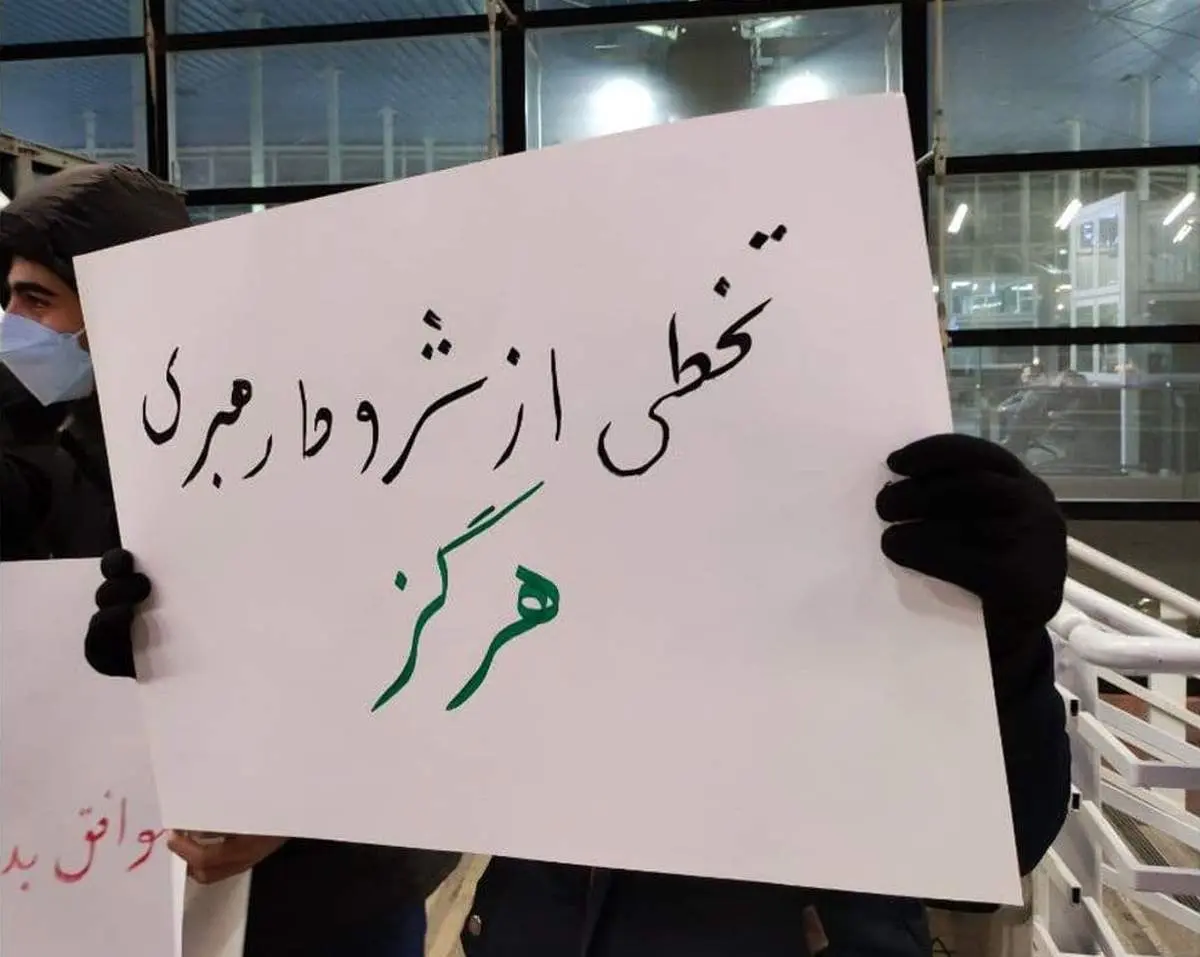 تخطی از شروط رهبری
هرگز
موافق بد